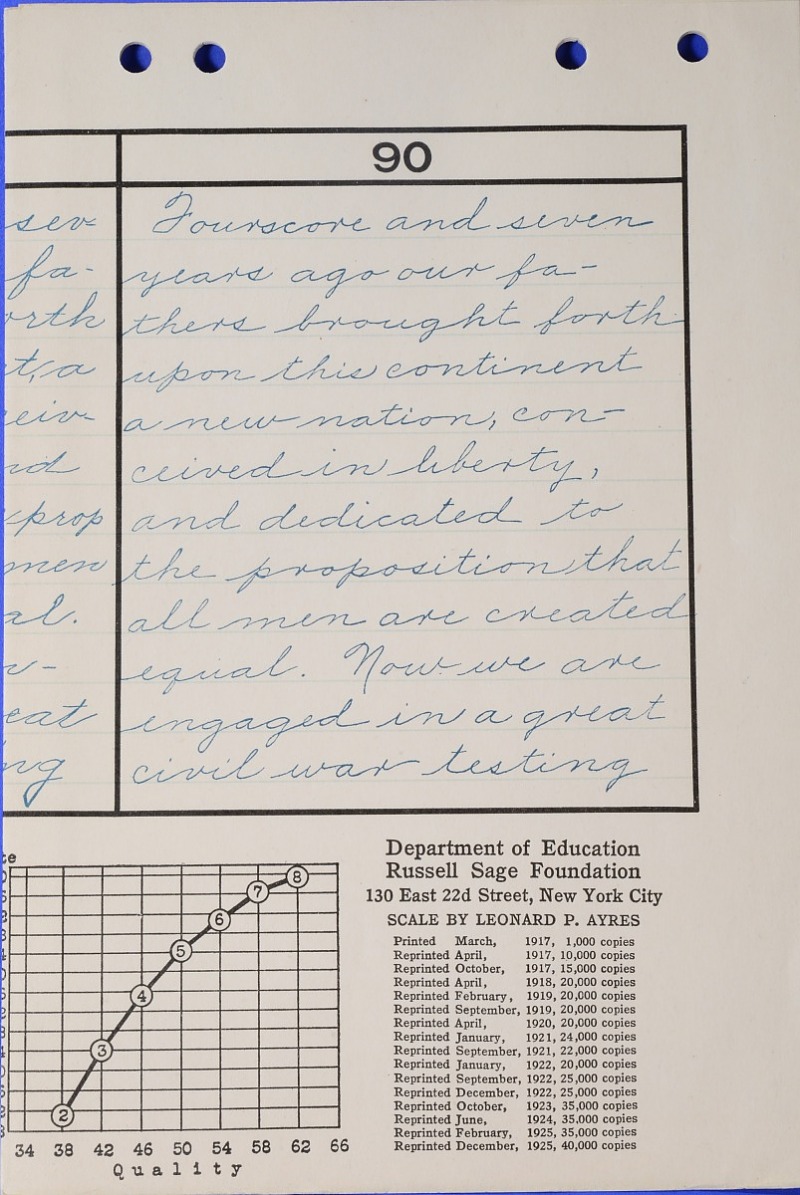 90
sev-
fa-
rth
t, a
eiv-
nd
prop
men
al.
w-
eat
ng
Fourscore and seven
years ago our fa-
thers brought forth
upon this continent
a new nation, con-
ceived in liberty,
and dedicated to
the proposition that
all men are created
equal. Now we are
engaged in a great
civil war testing
te
8
7
6
5
4
3
2
34 38 42 46 50 54 58 62 66
Quality
Department of Education
Russell Sage Foundation
130 East 22d Street, New York City
SCALE BY LEONARD P. AYRES
Printed March, 1917, 1,000 copies
Reprinted April, 1917, 10,000 copies
Reprinted October, 1917, 15,000 copies
Reprinted April, 1918, 20,000 copies
Reprinted February, 1919, 20,000 copies
Reprinted September, 1919, 20,000 copies
Reprinted April, 1920, 20,000 copies
Reprinted January, 1921, 24,000 copies
Reprinted September, 1921, 22,000 copies
Reprinted January, 1922, 20,000 copies
Reprinted September, 1922, 25,000 copies
Reprinted December, 1922, 25,000 copies
Reprinted October, 1923, 35,000 copies
Reprinted June, 1924, 35,000 copies
Reprinted February, 1925, 35,000 copies
Reprinted December, 1925, 40,000 copies